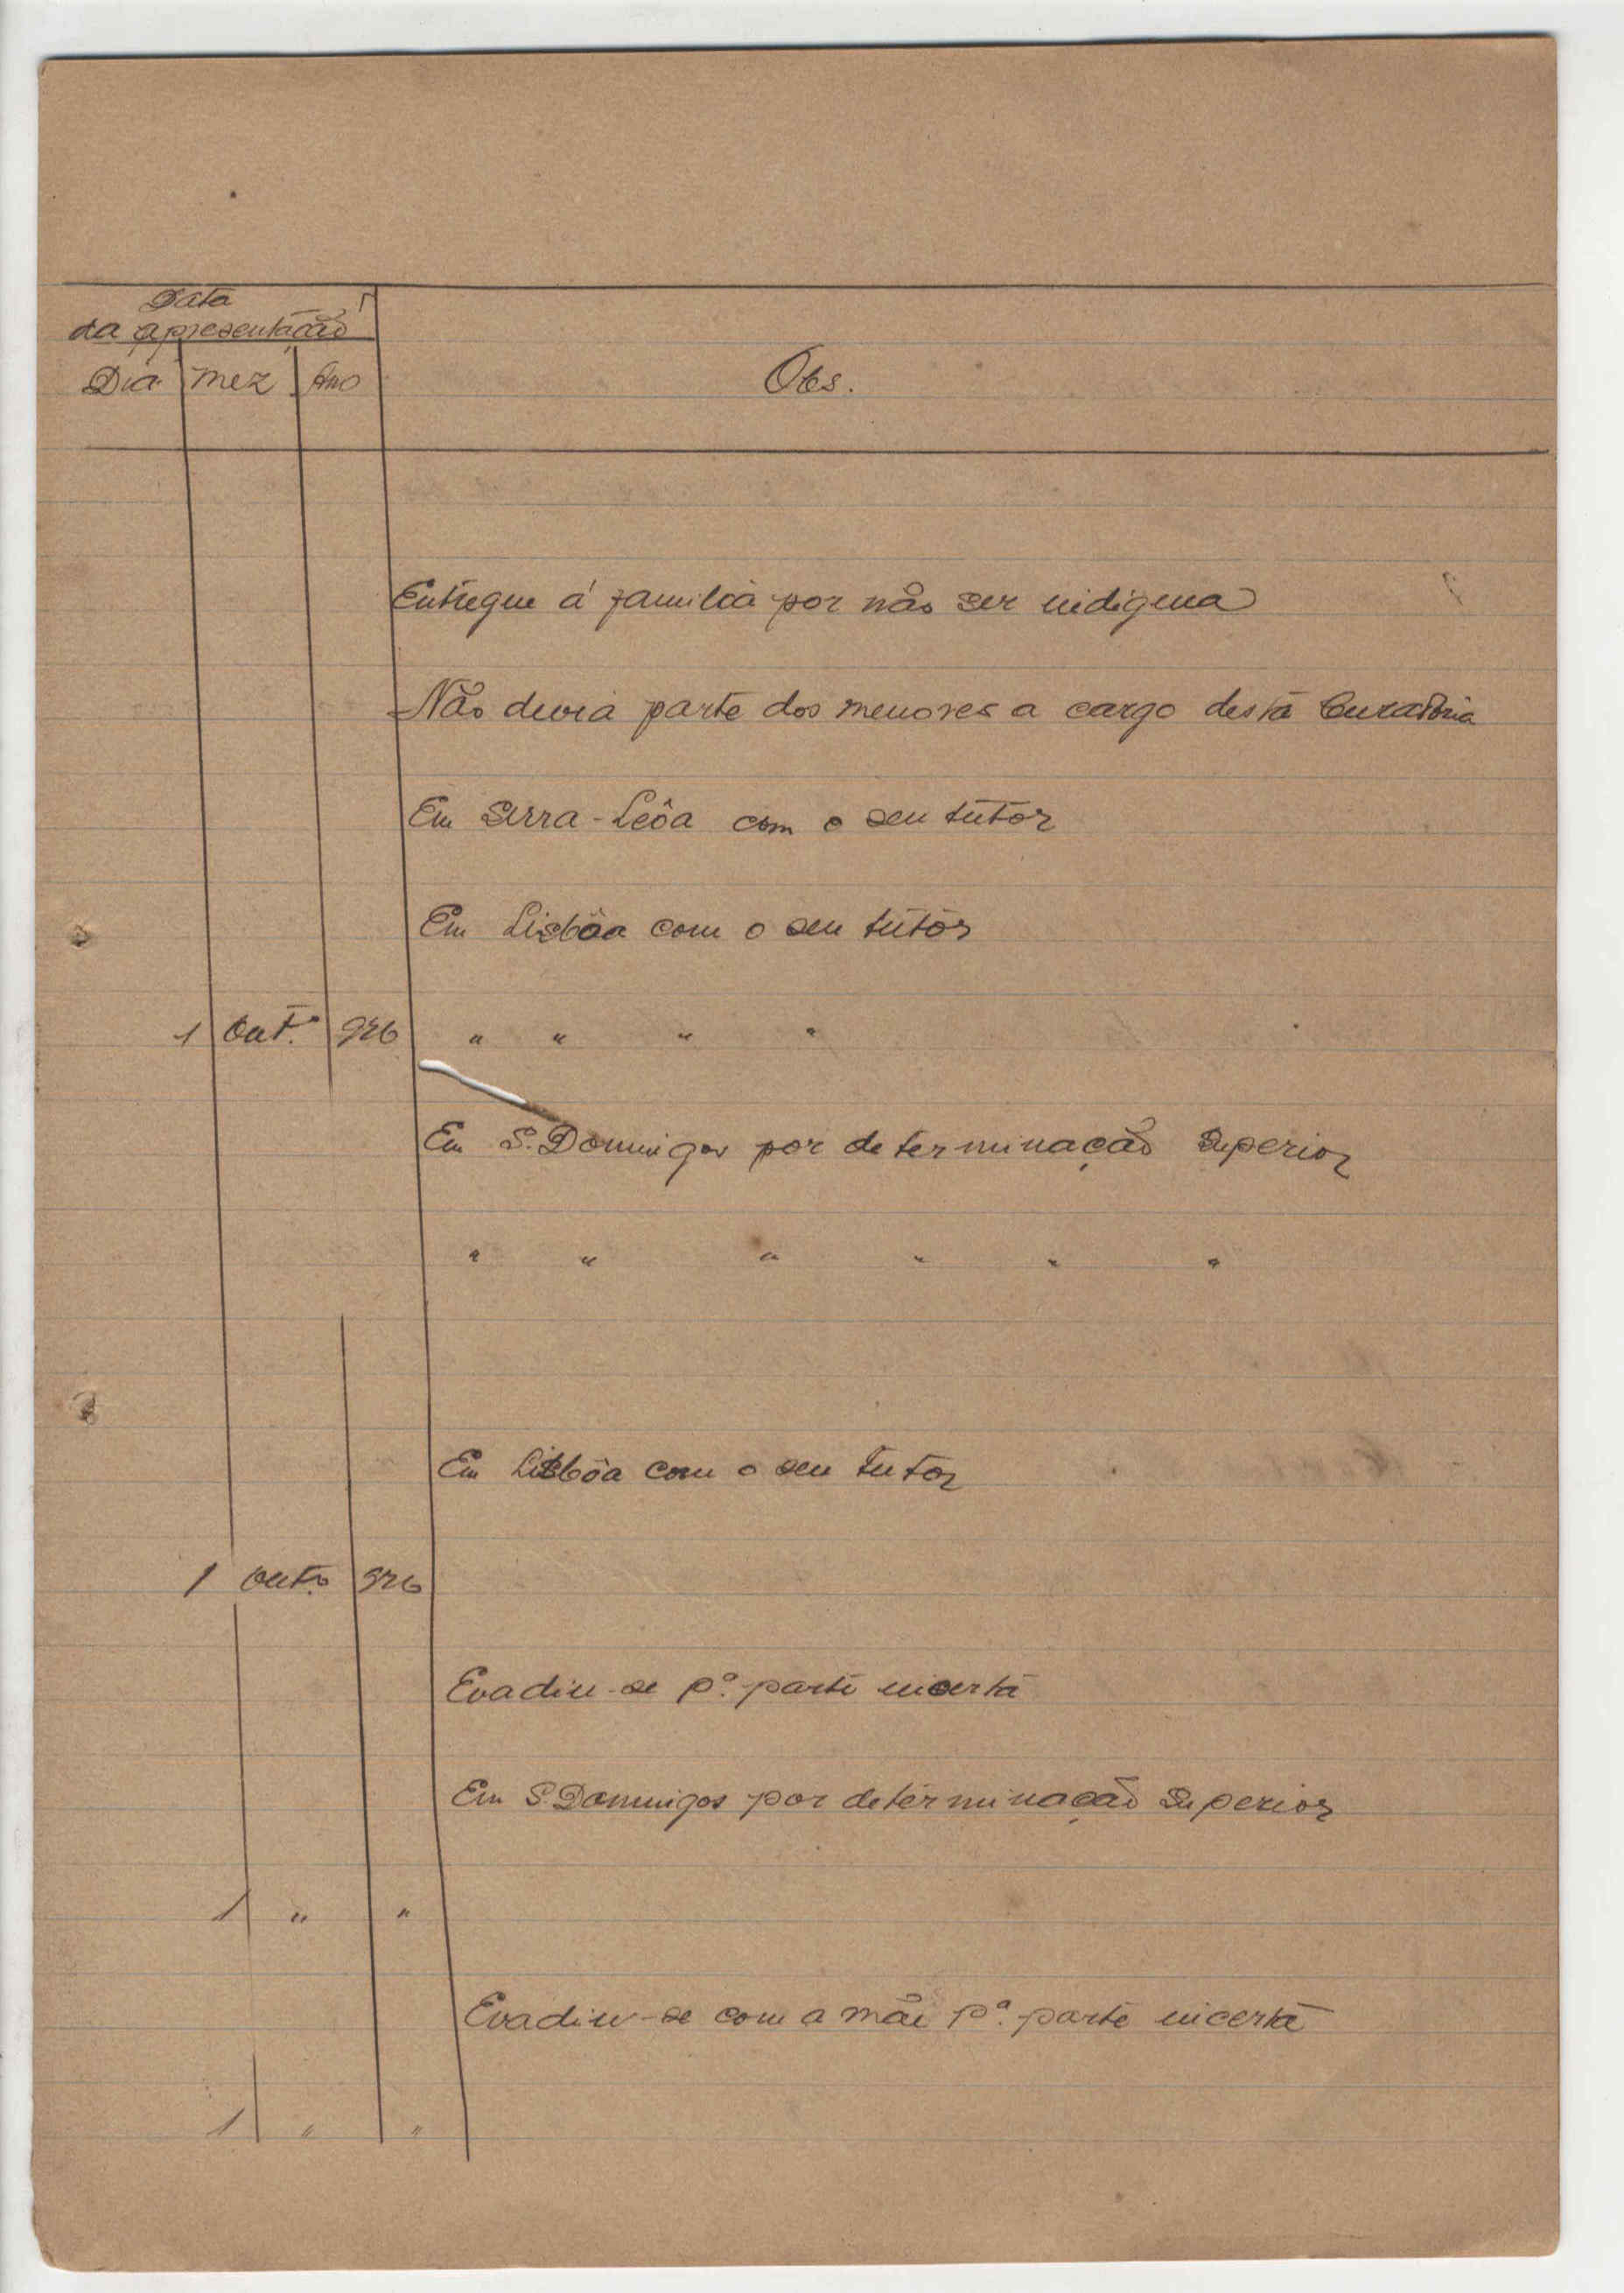 Data
da apresentação
Dia Mez Ano Obs.
Entregue á familia por não ser indigena
Não devia parte dos menores a cargo desta Curadoria
Em Serra-Leôa com o seu tutor
Em Lisbôa com o seu tutor
1 Out.º 926 " " " "
Em S. Domingos por determinação Superior
" " " " " "
Em Lisbôa com o seu tutor
1 Out.º 926
Evadiu-se pª. parte incerta
Em S. Domingos por determinação Superior
1 " "
Evadiu-se com a mãe pª. parte incerta
1 " "